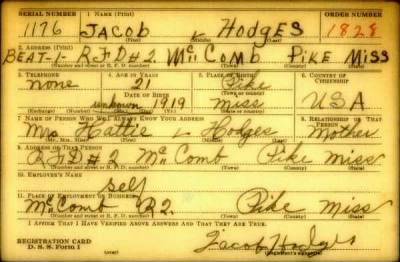 SERIAL NUMBER 1. NAME (Print) ORDER NUMBER
1176 JACOB L HODGES 1828
(First) (Middle) (Last)
2. ADDRESS (Print)
BEAT-1 RFD#2 McComb Pike Miss
(Number and street or R. F. D. number) (Town) (County) (State)
3. TELEPHONE 4. AGE IN YEARS 5. PLACE OF BIRTH 6. COUNTRY OF CITIZENSHIP
none 21 Pike
DATE OF BIRTH (Town or county)
unknown 1919 Miss USA
(Mo.) (Day) (Yr.) (State or country)
7. NAME OF PERSON WHO WILL ALWAYS KNOW YOUR ADDRESS 8. RELATIONSHIP OF THAT PERSON
Mrs Hattie L Hodges Mother
(Mr., Mrs., Miss) (First) (Middle) (Last)
9. ADDRESS OF THAT PERSON
RFD#2 McComb Pike Miss
(Number and street or R. F. D. number) (Town) (County) (State)
10. EMPLOYER'S NAME
Self
11. PLACE OF EMPLOYMENT OR BUSINESS
McComb R2. Pike Miss
(Number and street or R. F. D. number) (Town) (County) (State)
I AFFIRM THAT I HAVE VERIFIED ABOVE ANSWERS AND THAT THEY ARE TRUE.
REGISTRATION CARD
D. S. S. Form 1 Jacob Hodges
(Registrant's signature)